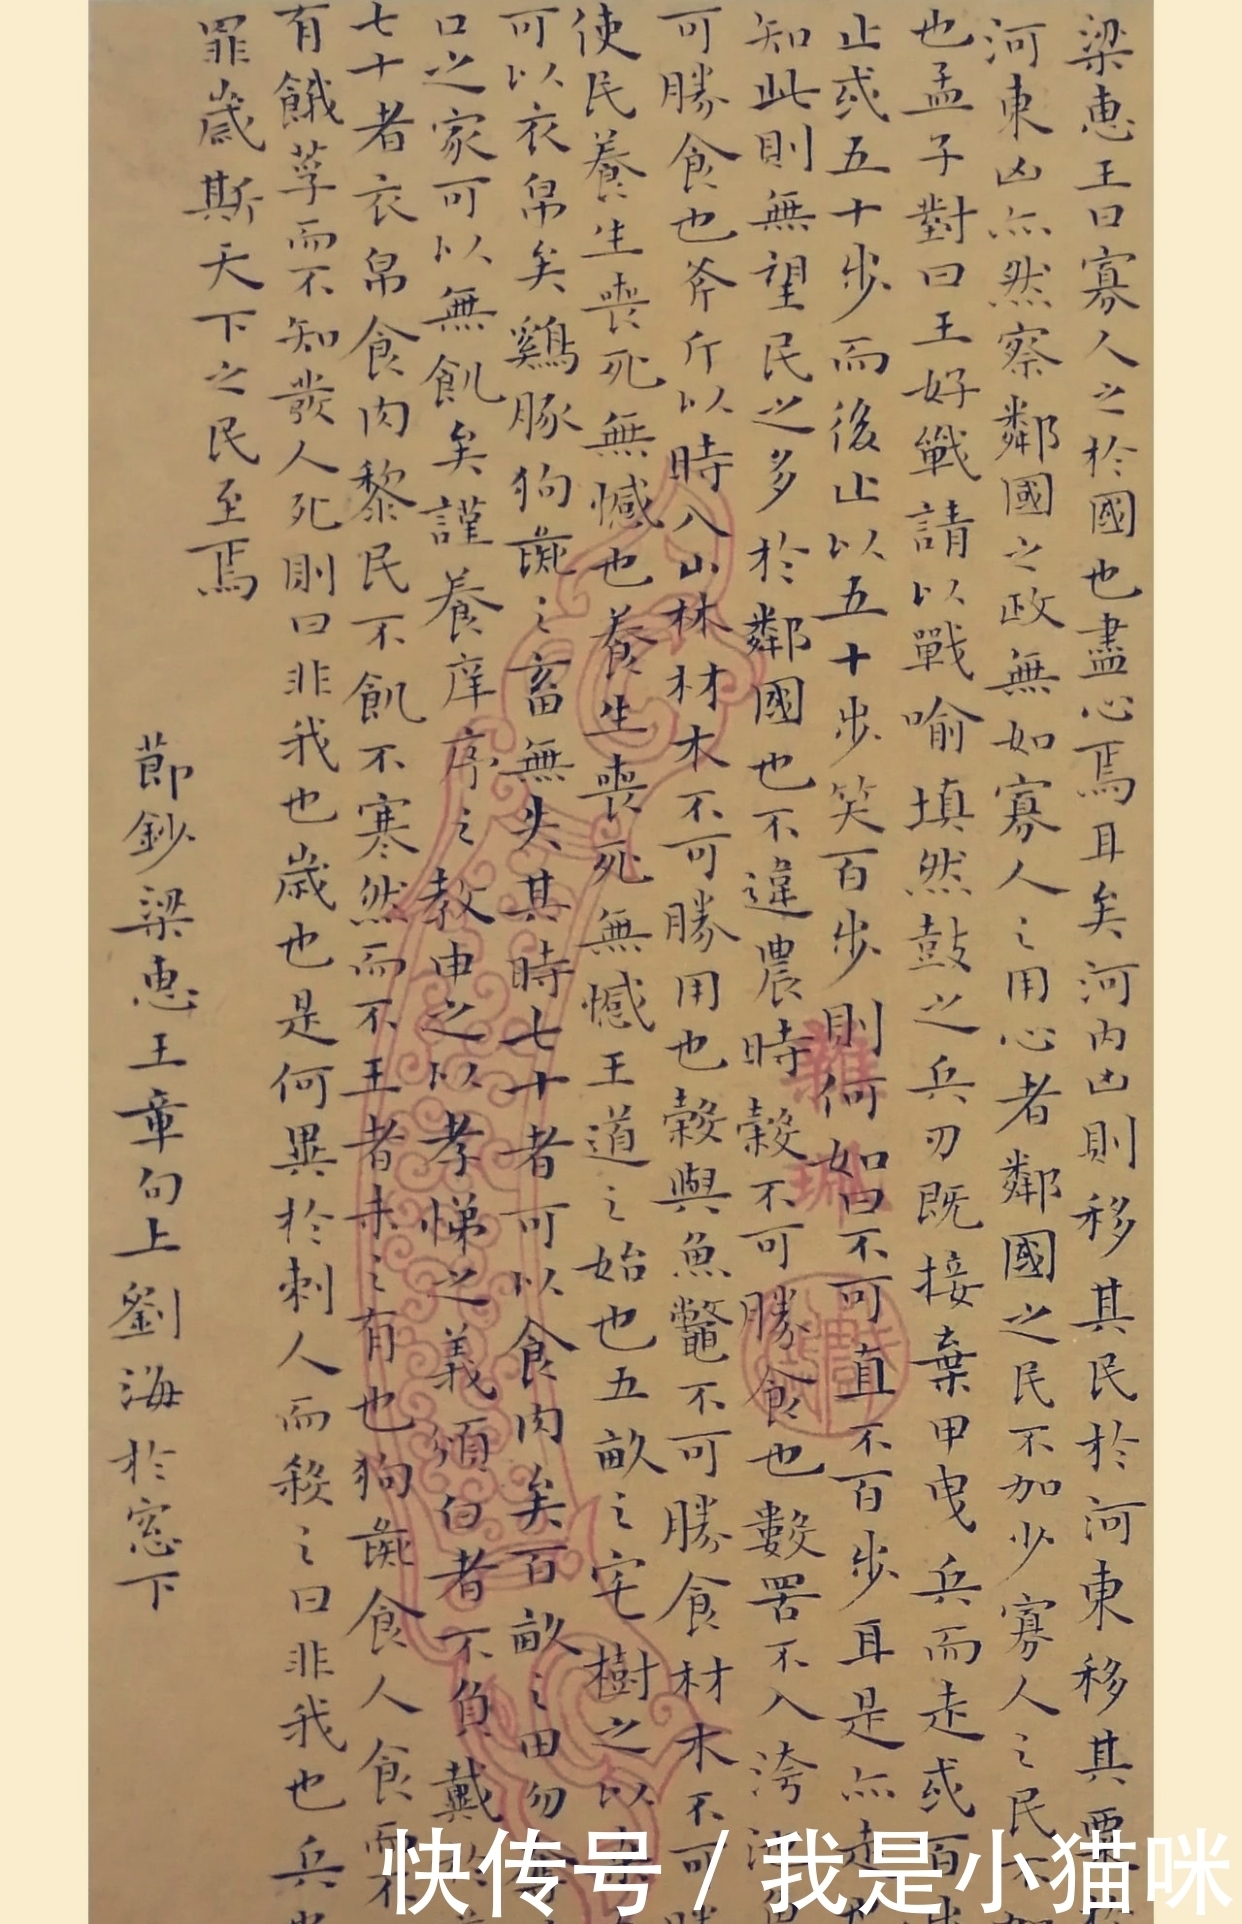 梁惠王曰寡人之於國也盡心焉耳矣河内凶則移其民於河東移其粟
河東凶亦然察鄰國之政無如寡人之用心者鄰國之民不加少寡人之民不加
也孟子對曰王好戰請以戰喻填然鼓之兵刃既接棄甲曳兵而走或百步
止或五十步而後止以五十步笑百步則何如曰不可直不百步耳是亦走
知此則無望民之多於鄰國也不違農時穀不可勝食也數罟不入洿池魚
可勝食也斧斤以時入山林材木不可勝用也穀與魚鼈不可勝食材木不可勝
使民養生喪死無憾也養生喪死無憾王道之始也五畝之宅樹之以
可以衣帛矣鷄豚狗彘之畜無失其時七十者可以食肉矣百畝之田勿奪
口之家可以無飢矣謹養庠序之教申之以孝悌之義頒白者不負戴於
七十者衣帛食肉黎民不飢不寒然而不王者未之有也狗彘食人食而不
有餓莩而不知發人死則曰非我也歲也是何異於刺人而殺之曰非我也兵
罪歲斯天下之民至焉
節鈔梁惠王章句上劉海於窓下
快传号/我是小猫咪